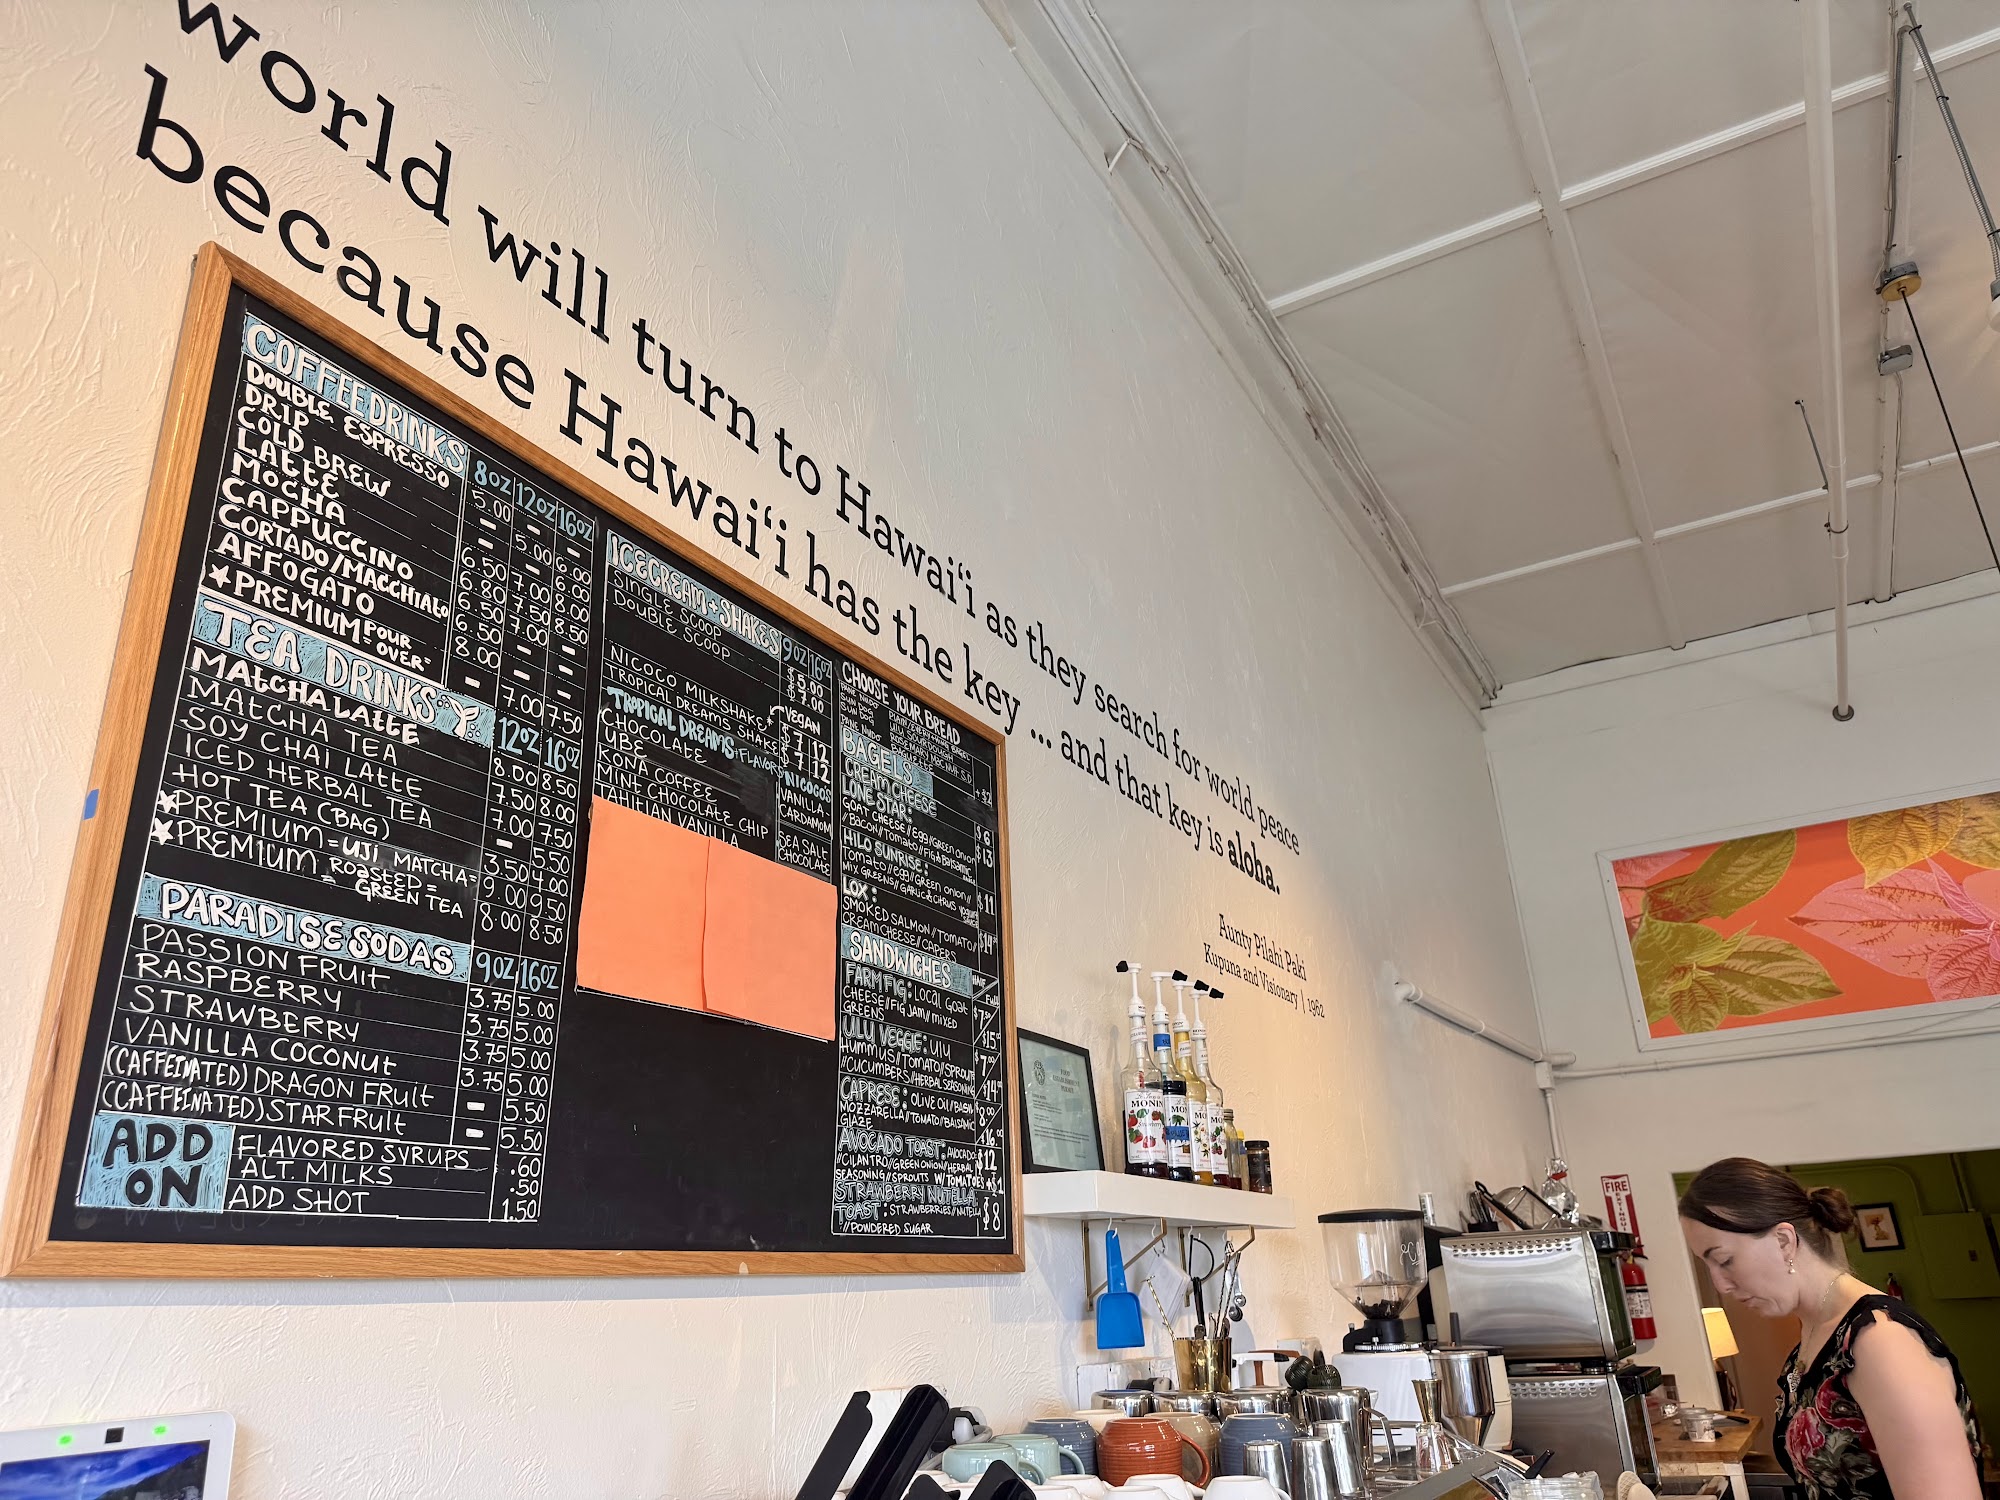 world will turn to Hawai‘i as they search for world peace
because Hawai‘i has the key ... and that key is aloha.
Aunty Pilahi Paki
Kupuna and Visionary | 1962
COFFEE DRINKS 8oz 12oz 16oz
DOUBLE ESPRESSO 5.00 - -
DRIP - 5.00 6.00
COLD BREW - - 6.00
LATTE 6.50 7.00 8.00
MOCHA 6.80 7.50 8.50
CAPPUCCINO 6.50 7.00 -
CORTADO/MACCHIATO 6.50 - -
AFFOGATO 8.00 - -
PREMIUM = POUR OVER = - 7.00 7.50
TEA DRINKS 12oz 16oz
MATCHA LATTE 8.00 8.50
MATCHA TEA 7.50 8.00
SOY CHAI LATTE 7.00 7.50
ICED HERBAL TEA - 5.50
HOT TEA (BAG) 3.50 4.00
PREMIUM = UJI MATCHA = 9.00 9.50
PREMIUM = ROASTED GREEN TEA = 8.00 8.50
PARADISE SODAS 9oz 16oz
PASSION FRUIT 3.75 5.00
RASPBERRY 3.75 5.00
STRAWBERRY 3.75 5.00
VANILLA COCONUT 3.75 5.00
(CAFFEINATED) DRAGON FRUIT - 5.50
(CAFFEINATED) STARFRUIT - 5.50
ADD ON
FLAVORED SYRUPS .60
ALT. MILKS .50
ADD SHOT 1.50
ICECREAM + SHAKES 9oz 16oz
SINGLE SCOOP $5.00
DOUBLE SCOOP $7.00
* VEGAN
NICOCO MILKSHAKE* $7 12
TROPICAL DREAMS SHAKE $7 12
TROPICAL DREAMS FLAVORS
CHOCOLATE
UBE
KONA COFFEE
MINT CHOCOLATE CHIP
TAHITIAN VANILLA
NICOCO'S
VANILLA
CARDAMOM
SEA SALT
CHOCOLATE
CHOOSE YOUR BREAD
BAGELS + $2
CREAM CHEESE $6
LONE STAR: $13
GOAT CHEESE // Egg // Green Onion
// Bacon // Tomato // Fig & Balsamic
HILO SUNRISE:
Tomato // egg // Green onion //
Mix Greens // Garlic & Citrus Yogurt $11
LOX:
SMOKED SALMON // TOMATO //
CREAM CHEESE // CAPERS $14
SANDWICHES HALF Full
FARM FIG: Local Goat
CHEESE // FIG JAM // MIXED
GREENS $7.50 $15
ULU VEGGIE: ulu
HUMMUS // TOMATO // SPROUTS
// CUCUMBERS // HERBAL SEASONING $7 $14
CAPRESE: OLIVE OIL // BASIL
MOZZARELLA // TOMATO // BALSAMIC
GLAZE $8.00 $16.00
AVOCADO TOAST: AVOCADO $12
// CILANTRO // GREEN ONION // HERBAL
SEASONING // SPROUTS W/ TOMATOES + $1
STRAWBERRY NUTELLA
TOAST: STRAWBERRIES // NUTELLA
// POWDERED SUGAR $8
MONIN
FIRE